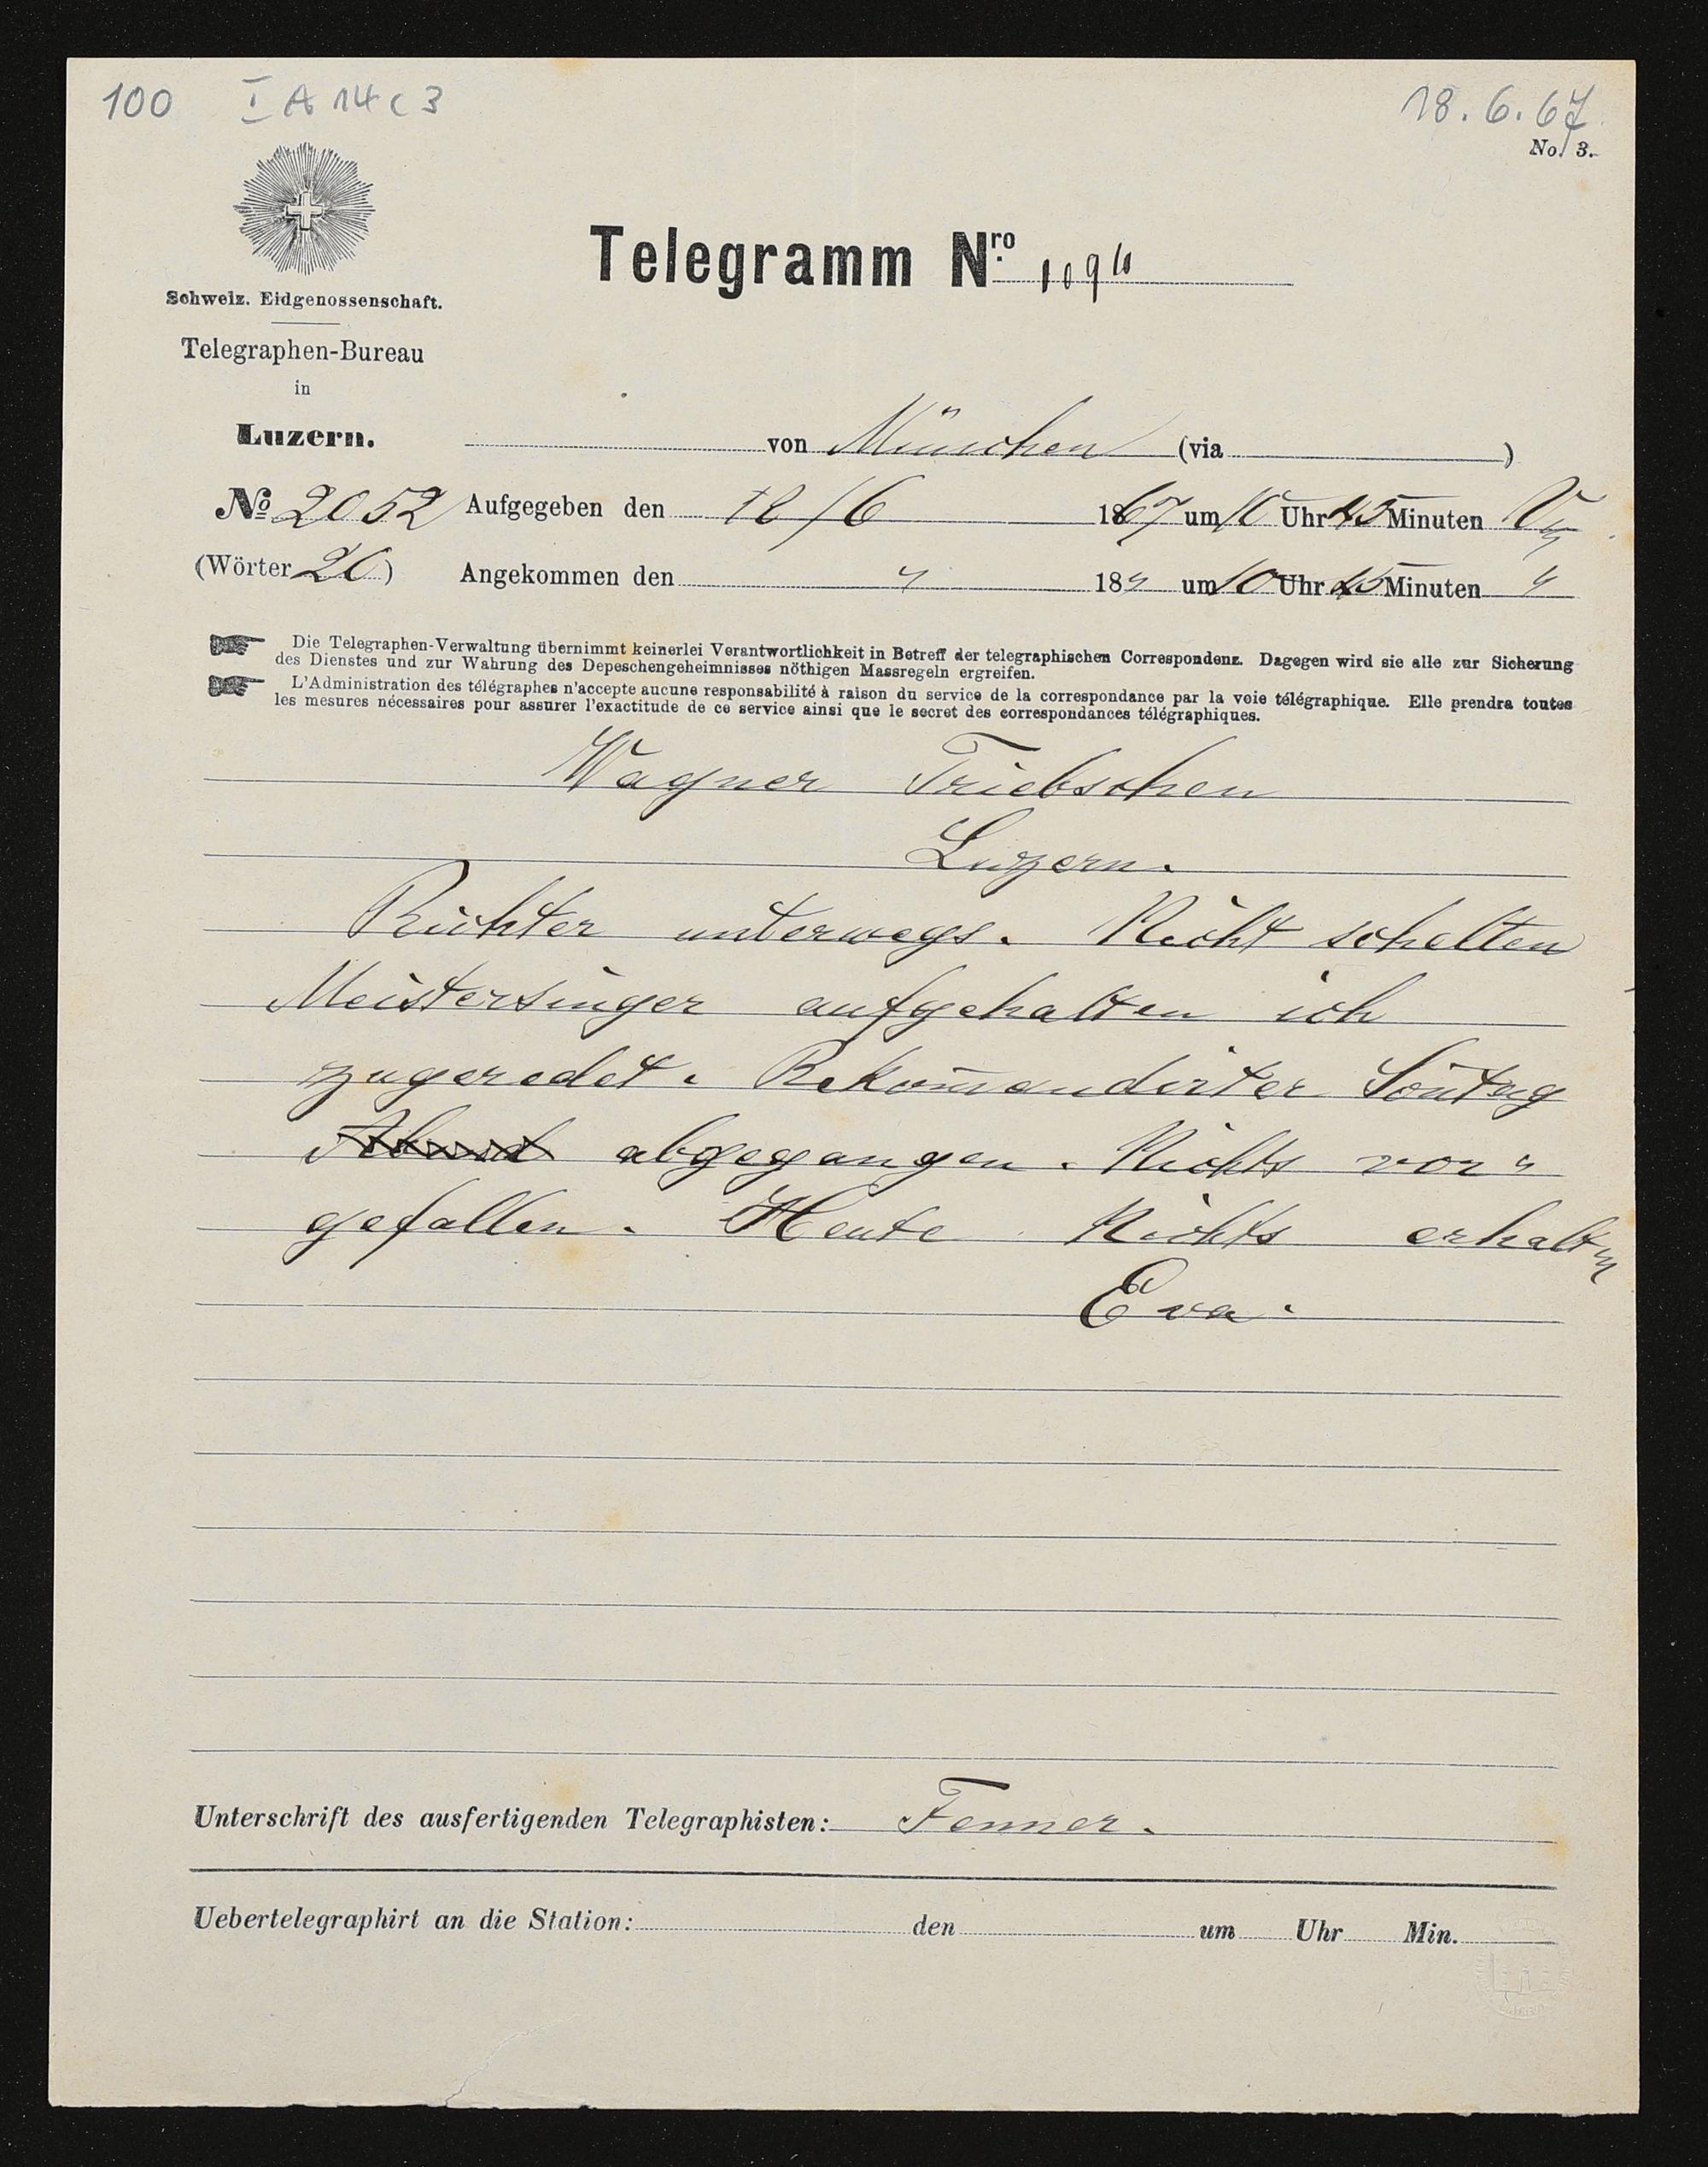 100 I A 14 c 3
18. 6. 67
No. 3.
Telegramm Nro.
Schweiz. Eidgenossenschaft.
Telegraphen-Bureau
in
Luzern. von München (via )
No 2052 Aufgegeben den 18/6 1867 um 10 Uhr 45 Minuten
(Wörter 20) Angekommen den " 18" um 10 Uhr 45 Minuten "
Die Telegraphen-Verwaltung übernimmt keinerlei Verantwortlichkeit in Betreff der telegraphischen Correspondenz. Dagegen wird sie alle zur Sicherung
des Dienstes und zur Wahrung des Depeschengeheimnisses nöthigen Massregeln ergreifen.
L'Administration des télégraphes n'accepte aucune responsabilité à raison du service de la correspondance par la voie télégraphique. Elle prendra toutes
les mesures nécessaires pour assurer l'exactitude de ce service ainsi que le secret des correspondances télégraphiques.
Wagner Triebschen
Luzern.
Richter unterwegs. Nicht schelten
Meistersinger aufgehalten ich
zugeredet. Rekom̄andirter Son̄tag
Abend abgegangen. Nichts vor=
gefallen. Heute Nichts erhalten
Eva.
Unterschrift des ausfertigenden Telegraphisten: Fenner.
Uebertelegraphirt an die Station: den um Uhr Min.